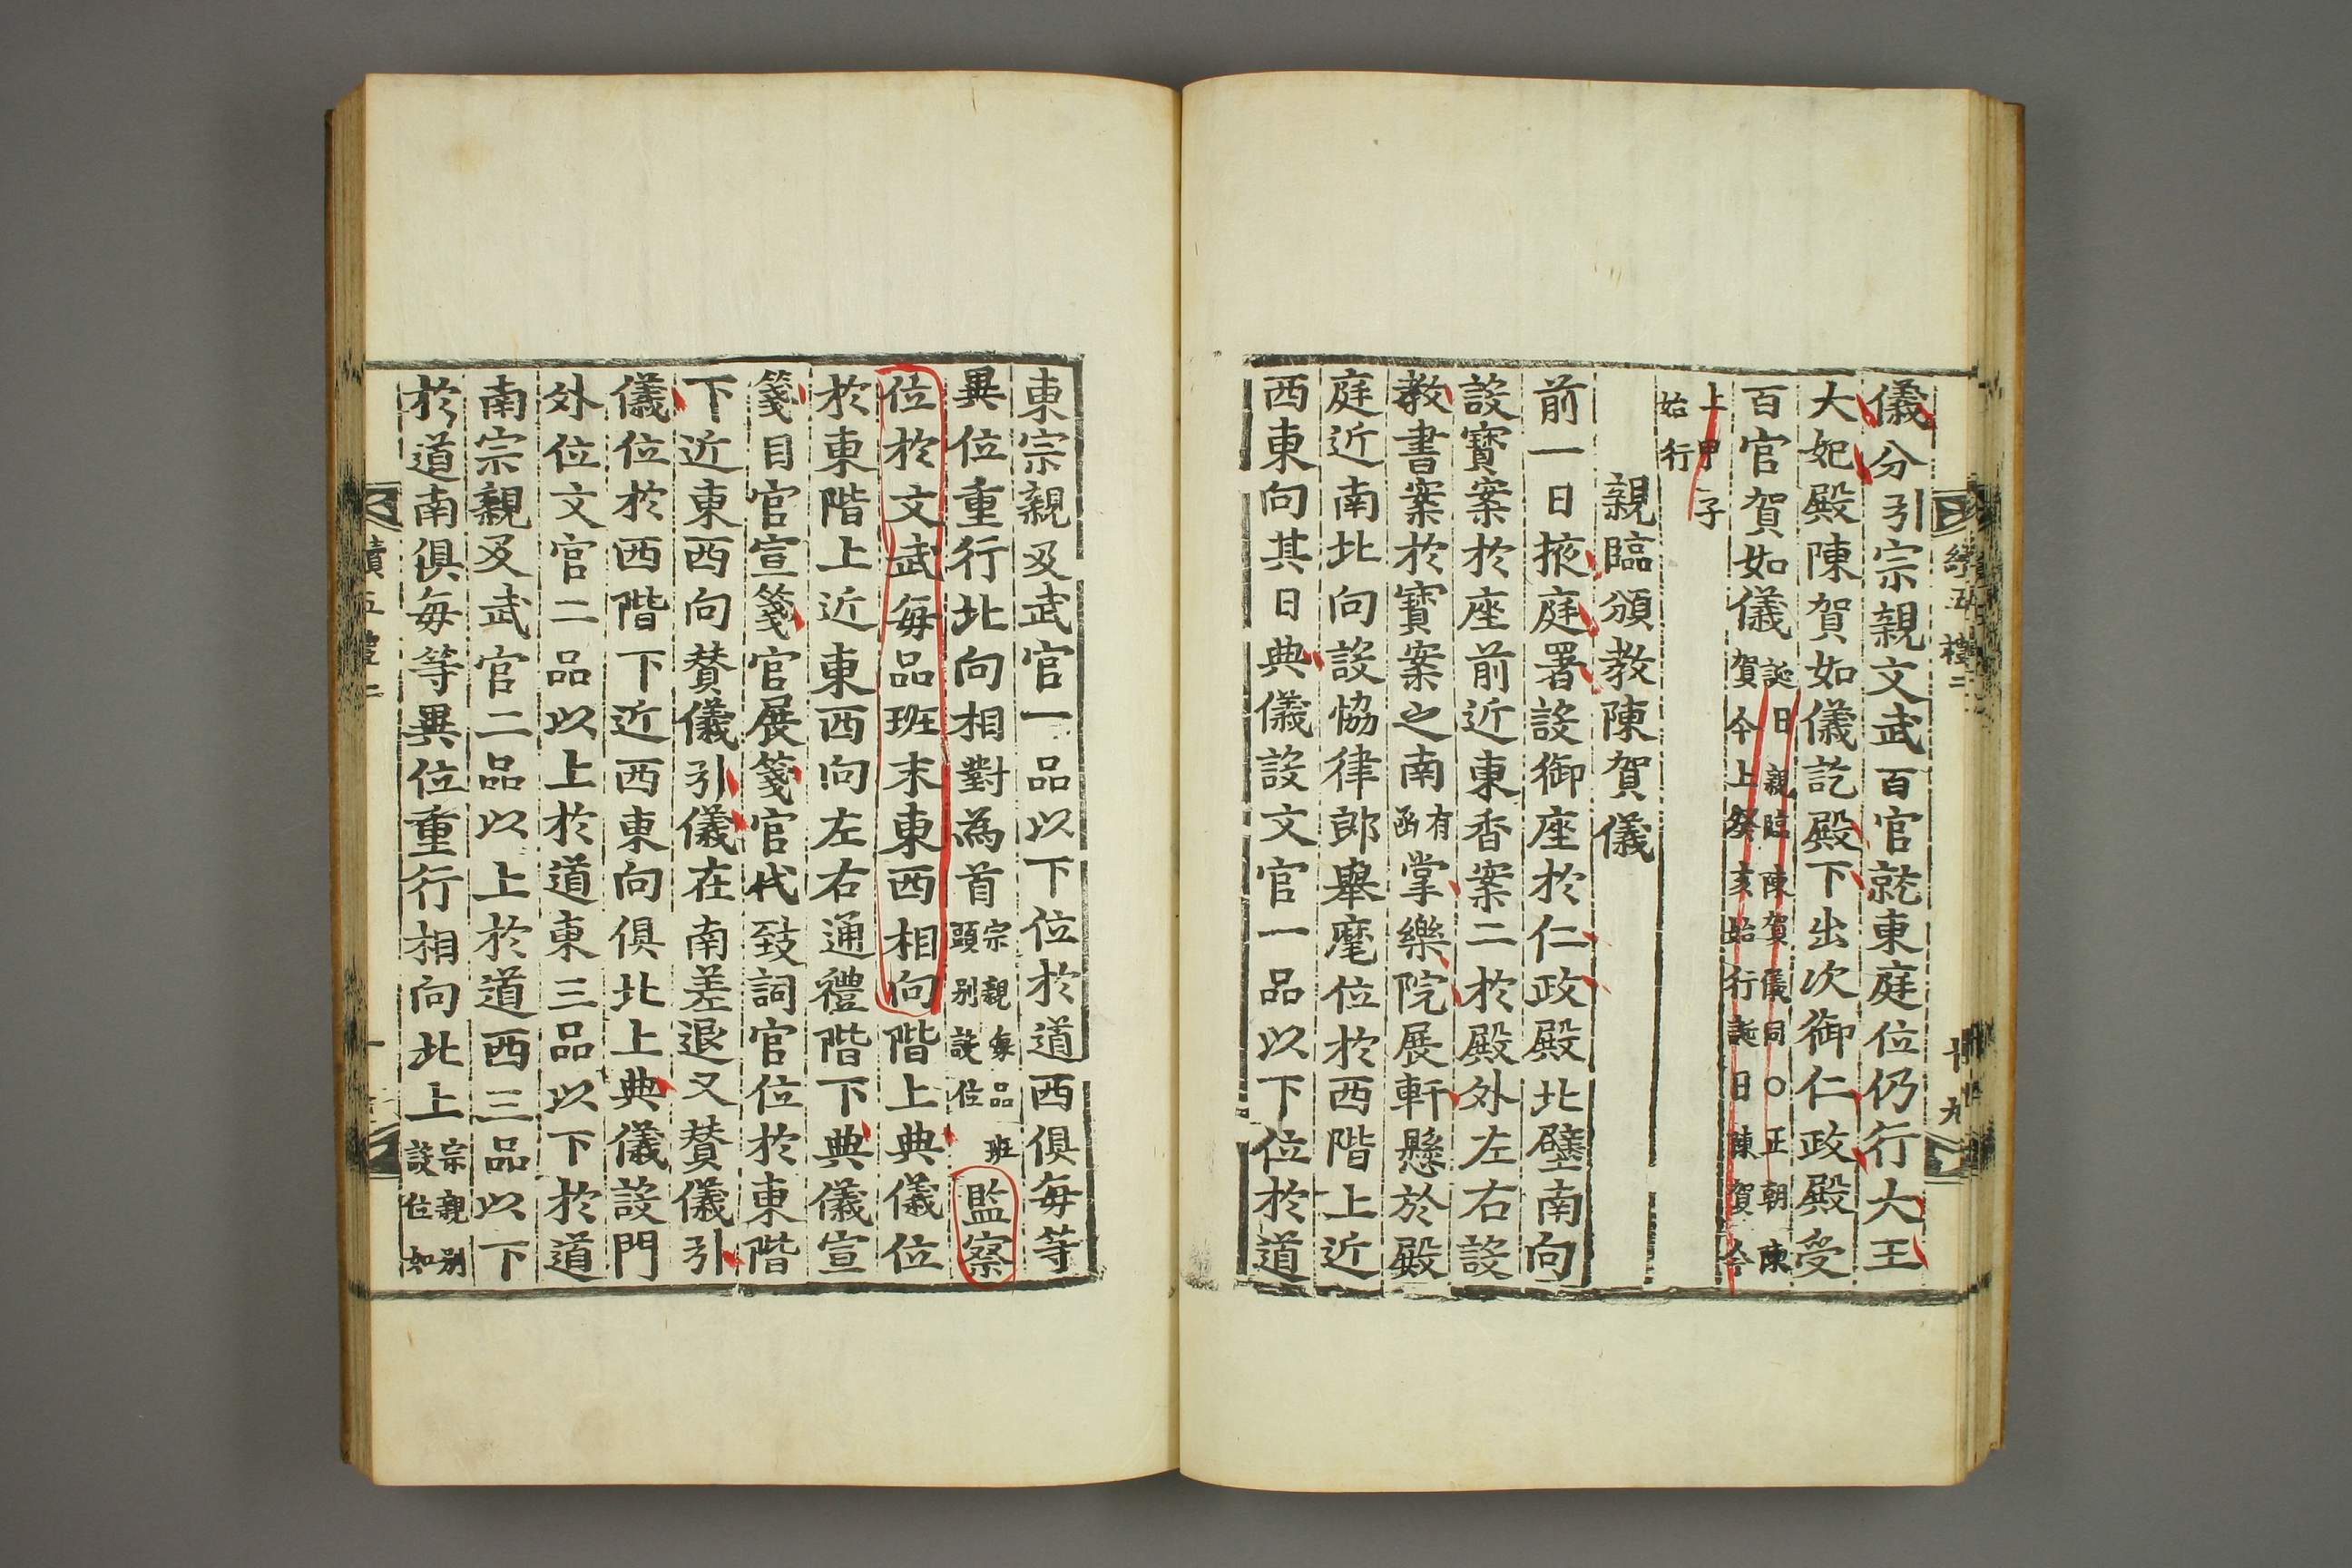 儀分引宗親文武百官就東庭位仍行大王
大妃殿陳賀如儀訖殿下出次御仁政殿受
百官賀如儀誕日親臨陳賀儀同○正朝陳
賀今上癸亥始行誕日陳賀今
上甲子
始行
親臨頒教陳賀儀
前一日掖庭署設御座於仁政殿北壁南向
設寶案於座前近東香案二於殿外左右設
教書案於寶案之南有函掌樂院展軒懸於殿
庭近南北向設恊律郎舉麾位於西階上近
西東向其日典儀設文官一品以下位於道
東宗親及武官一品以下位於道西俱每等
異位重行北向相對為首宗親每品班
頭別設位監察
位於文武每品班末東西相向階上典儀位
於東階上近東西向左右通禮階下典儀宣
箋目官宣箋官展箋官代致詞官位於東階
下近東西向賛儀引儀在南差退又賛儀引
儀位於西階下近西東向俱北上典儀設門
外位文官二品以上於道東三品以下於道
南宗親及武官二品以上於道西三品以下
於道南俱每等異位重行相向北上宗親別
設位如